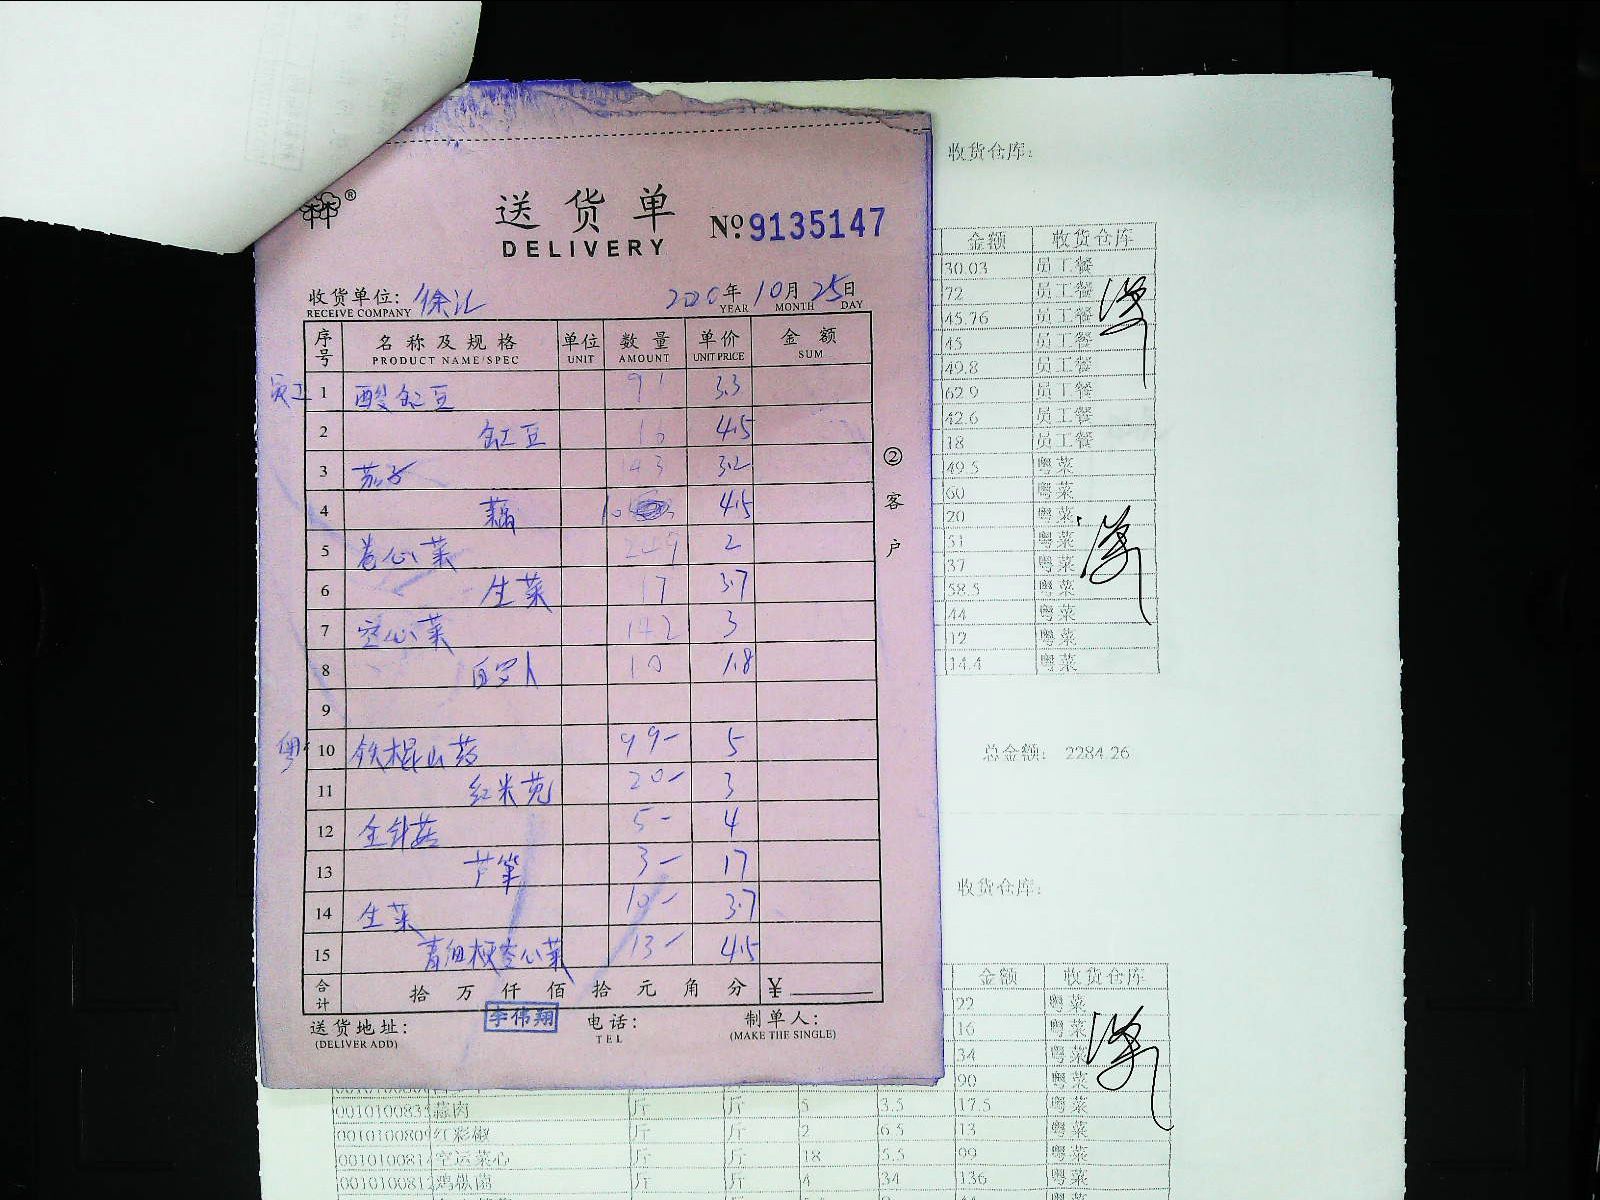 送货单
DELIVERY
№ 9135147
收货单位: 徐汇 2020年10月25日
RECEIVE COMPANY YEAR MONTH DAY
序号 名称及规格 单位 数量 单价 金额
PRODUCT NAME/SPEC UNIT AMOUNT UNIT PRICE SUM
员工 1 酸缸豆 91 3.3
2 缸豆 16 4.5
3 茄子 143 3.2
4 藕 10 4.5
5 卷心菜 249 2
6 生菜 17 3.7
7 空心菜 142 3
8 白罗卜 10 1.8
9
粤 10 铁棍山药 99- 5
11 红米苋 20- 3
12 金针菇 5- 4
13 芦笋 3- 17
14 生菜 10- 3.7
15 青细梗空心菜 13- 4.5
合计 拾 万 仟 佰 拾 元 角 分 ¥
李伟翔
送货地址: 电话: 制单人:
(DELIVER ADD) TEL (MAKE THE SINGLE)
②客户
收货仓库:
金额 收货仓库
30.03 员工餐
72 员工餐
45.76 员工餐
45 员工餐
49.8 员工餐
62.9 员工餐
42.6 员工餐
18 员工餐
49.5 粤菜
60 粤菜
20 粤菜
51 粤菜
37 粤菜
58.5 粤菜
44 粤菜
12 粤菜
14.4 粤菜
总金额: 2284.26
收货仓库:
金额 收货仓库
22 粤菜
16 粤菜
34 粤菜
90 粤菜
蒜肉 斤 斤 5 3.5 17.5 粤菜
红彩椒 斤 斤 2 6.5 13 粤菜
空运菜心 斤 斤 18 5.5 99 粤菜
鸡枞菌 斤 斤 4 34 136 粤菜